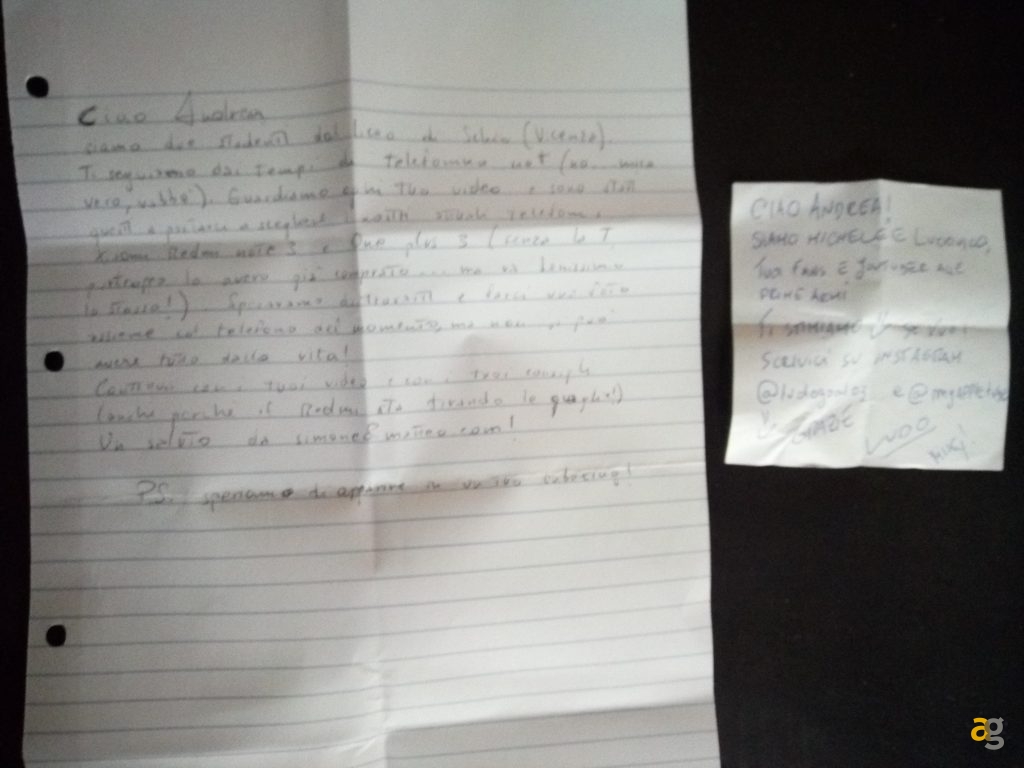 Ciao Andrea
siamo due studenti dal liceo di Schio (Vicenza).
Ti seguiamo dai tempi di telefonino net (no
vero, vabbè). Guardiamo ogni tuo video e sono stati
questi a portarci a scegliere i nostri attuali telefoni.
Xiaomi Redmi note 3 e One plus 3 (senza la T,
purtroppo lo avevo già comprato ... ma va benissimo
lo stesso!) Speravamo di trovarti e farci una foto
assieme col telefono del momento, ma non si può
avere tutto dalla vita!
Continua con i tuoi video e con i tuoi consigli
(anche perché il Redmi sta tirando le
Un saluto da simone& matteo.com!
P.S. speriamo di apparire in un tuo
CIAO ANDREA!
SIAMO MICHELE E LUDOVICO,
TUOI FANS E YOUTUBER ALLE
PRIME ARMI
TI STIMIAMO SE VUOI
SCRIVICI SU INSTAGRAM
e
GRAZIE
LUDO
MIKI!
ag